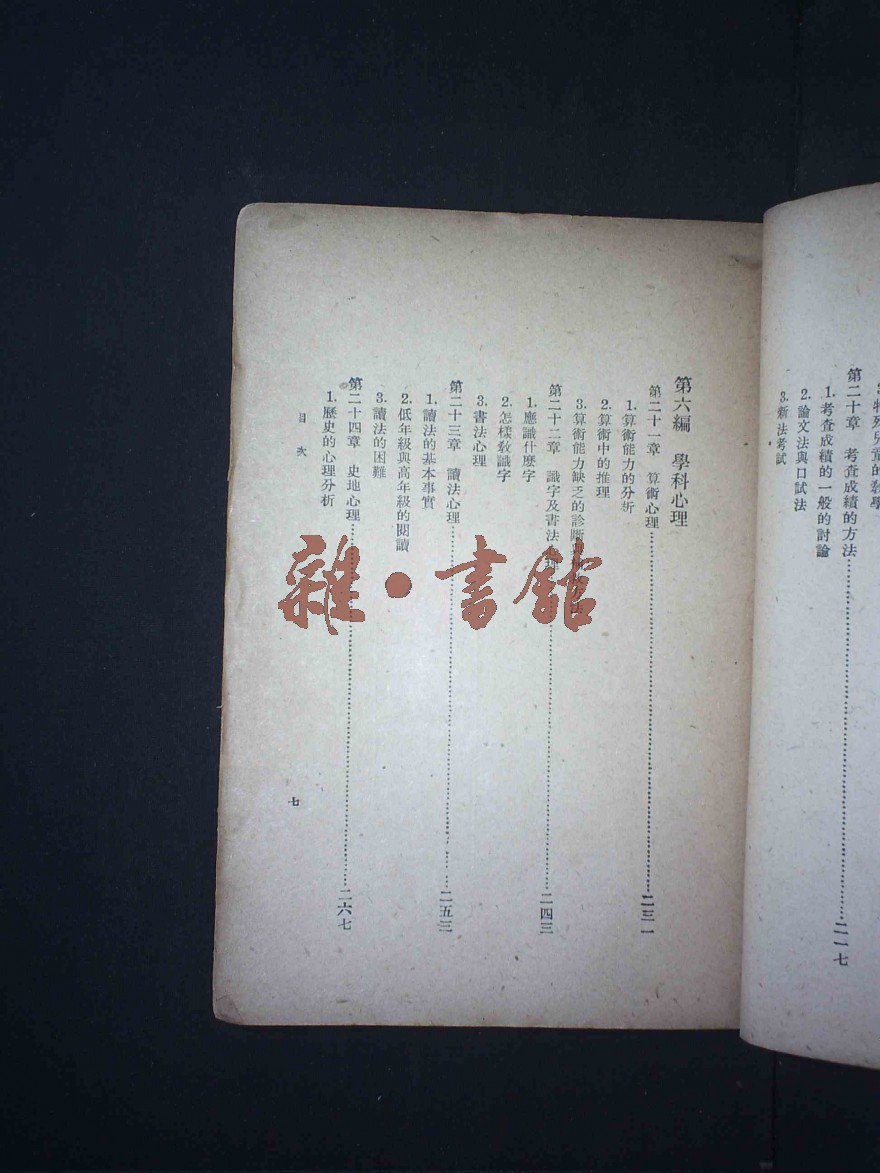 第二十章　考查成績的方法……二一七
1. 考查成績的一般的討論
2. 論文法與口試法
3. 新法考試
第六編　學科心理
第二十一章　算術心理……二三一
1. 算術能力的分析
2. 算術中的推理
3. 算術能力缺乏的診斷
第二十二章　識字及書法心理……二四三
1. 應識什麼字
2. 怎樣敎識字
3. 書法心理
第二十三章　讀法心理……二五三
1. 讀法的基本事實
2. 低年級與高年級的閱讀
3. 讀法的困難
第二十四章　史地心理……二六七
1. 歷史的心理分析
目次
七
雜·書館